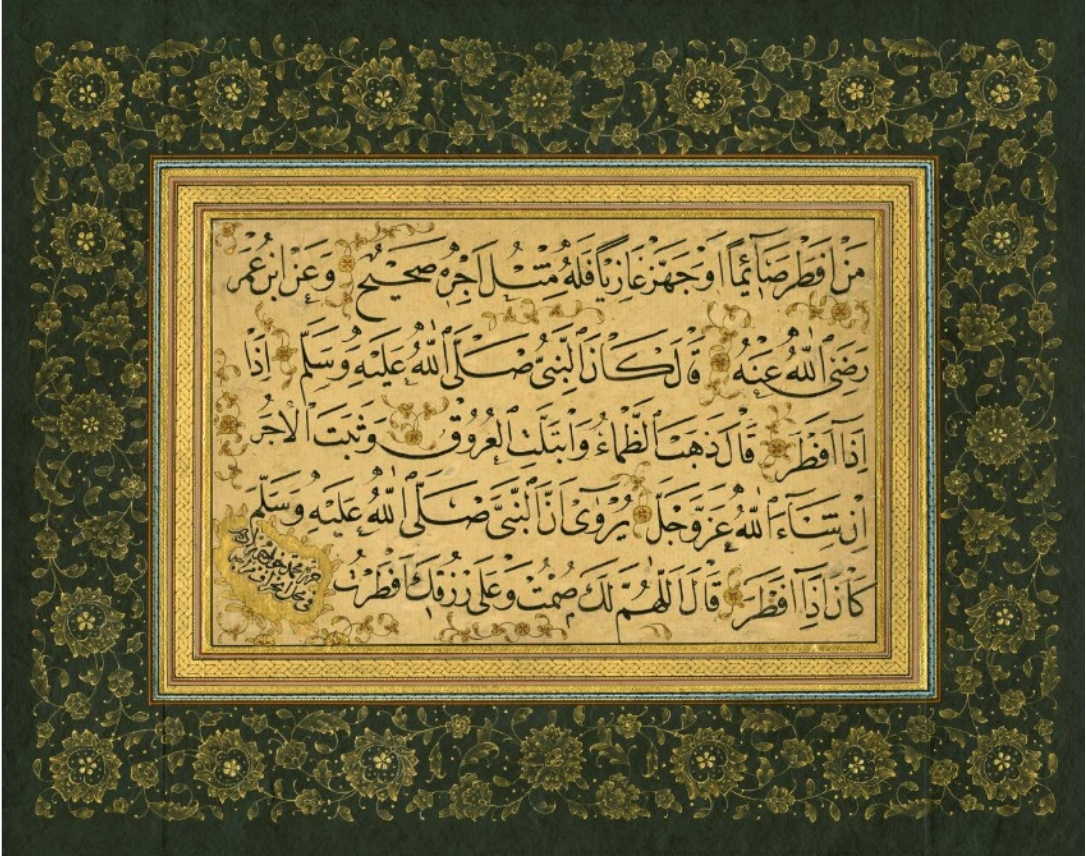 مَنْ اَفْطَرَ صَآئِمًا اَوْ جَهَّزَ غَازِيًا فَلَهُ مِثْلُ اَجْرِهِ صَحِيْحٌ وَعَنْ ابْنِ عُمَرَ
رَضِىَ اللّٰهُ عَنْهُ قَالَ كَانَ النَّبِىُّ صَلَّى اللّٰهُ عَلَيْهِ وَسَلَّمَ اِذَا
اِذَا اَفْطَرَ قَالَ ذَهَبَ الظَّمَاءُ وَابْتَلَّتِ الْعُرُوْقُ وَثَبَتَ الْاَجْرُ
اِنْ شَآءَ اللّٰهُ عَزَّ وَجَلَّ يُرْوٰى اَنَّ النَّبِىَّ صَلَّى اللّٰهُ عَلَيْهِ وَسَلَّمَ
كَانَ اِذَا اَفْطَرَ قَالَ اَللّٰهُمَّ لَكَ صُمْتُ وَعَلٰى رِزْقِكَ اَفْطَرْتُ